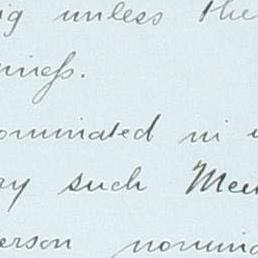 ig unless the
iness.
ominated in
ay such Mee
erson nomin